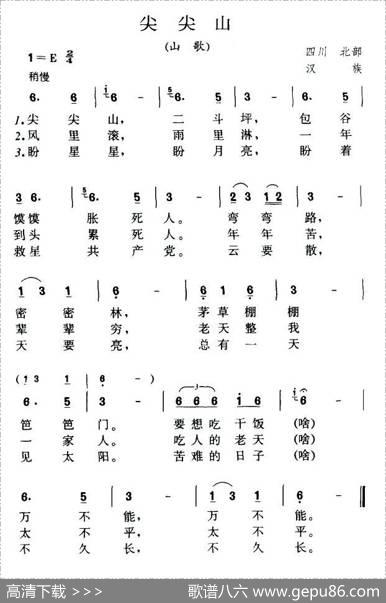 尖尖山
(山 歌)
1=E 2/4
四川 北部
稍慢
汉 族
6. 5 | 6 6 | 5 6. 5 | 3 - | 6. 5
1.尖 尖 山, 二 斗 坪, 包 谷
2.风 里 滚, 雨 里 淋, 一 年
3.盼 星 星, 盼 月 亮, 盼 着
3 6. | 5 6. 5 | 3 - | 2 3 12 | 3 -
馍馍 胀 死 人。 弯 弯 路,
到头 累 死 人。 年 年 苦,
救星 共 产 党。 云 要 散,
1 3 1 | 6 - | 6 1 | 3 1
密 密 林, 茅 草 棚 棚
辈 辈 穷, 老 天 整 我
天 要 亮, 总 有 一 天
(1 3 1 | 6 -)
6. 5 | 3 - | 6 6 6 5 1 6 | 1 6
笆 笆 门。 要想吃 干饭 (啥)
一 家 人。 吃人的 老天 (啥)
见 太 阳。 苦难的 日子 (啥)
6. 5 | 3 - | 6. 5 | 3 - ‖
万 不 能, 万 不 能。
太 不 平, 太 不 平。
不 久 长, 不 久 长。
高清下载 >>>
歌谱八六 www.gepu86.com